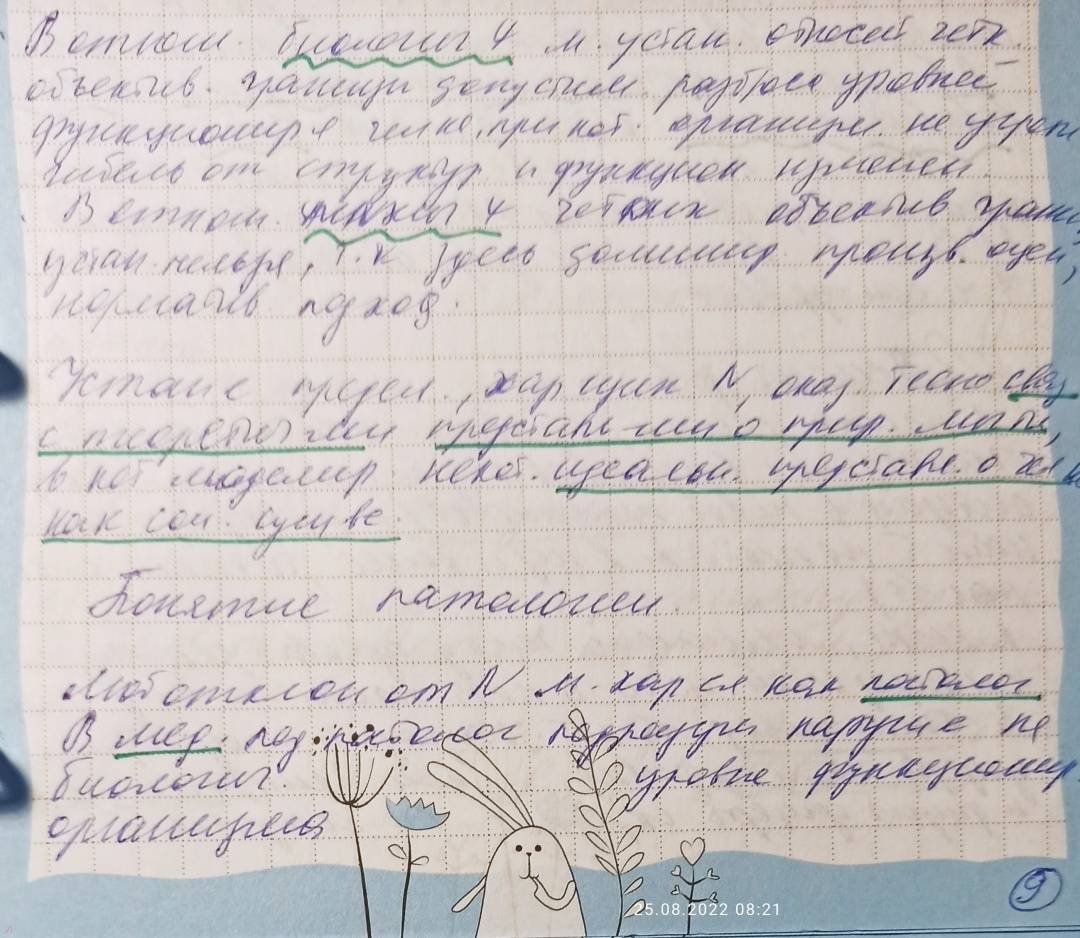 В отнош. биологич Ч м. устан. относит четк.
объектив. границы допустим. разброса уровней
функционир-я чел-ка, при кот. организм. не угрож
гибель от структур и функцион. изменен.
В отнош. психич Ч четких объектив границ
устан. нельзя, т.к здесь доминир. произв. оцен,
норматив. подход.
Устан-е предел., хар-щих N, оказ. тесно связ
с теоретич-ми представ-ми о прир. мы-ти,
в кот моделир некот. идеальн. представл. о чел-ке
как соц. сущ-ве.
Понятие патологии.
Люб отклон от N м. хар-ся как патолог
В мед. под патолог подразум наруш-е на
биологич. уровне функционир.
организма
9
25.08.2022 08:21